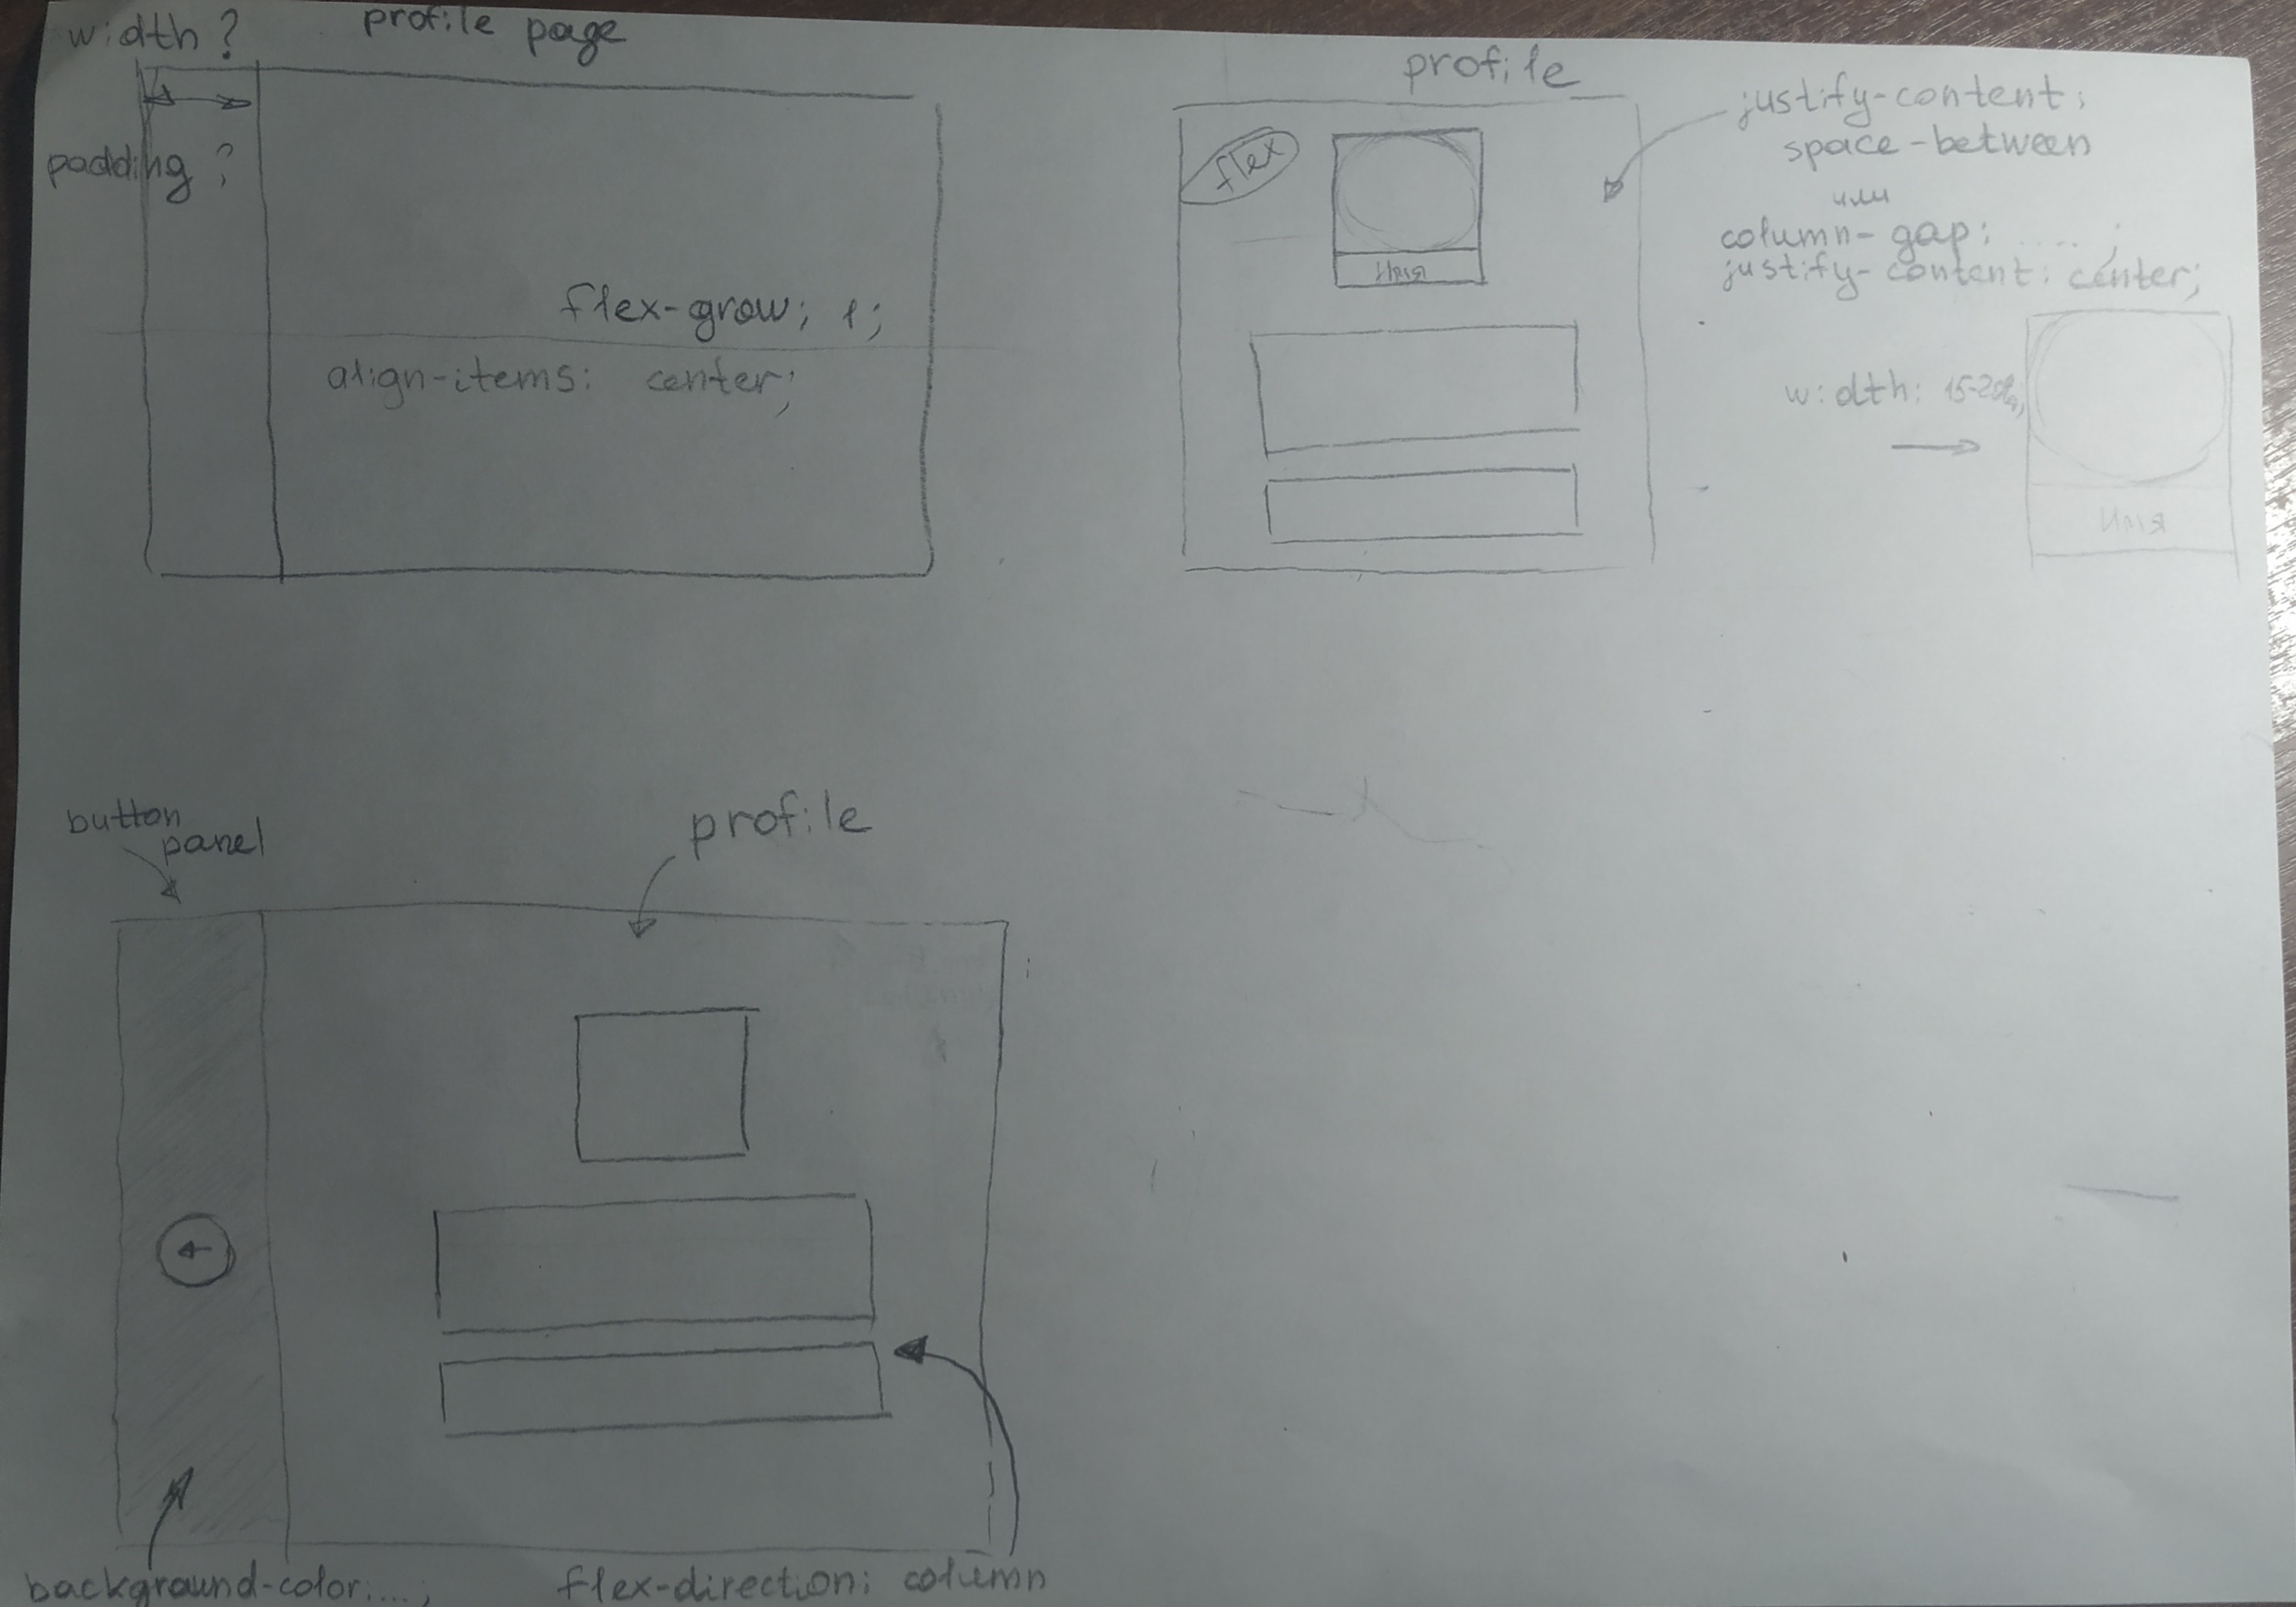 width ?
profile page
padding ?
flex-grow; 1;
align-items: center;
profile
flex
Имя
justify-content:
space-between
или
column-gap: ..... ;
justify-content: center;
width: 15-20%;
Имя
button
panel
profile
background-color:...;
flex-direction: column